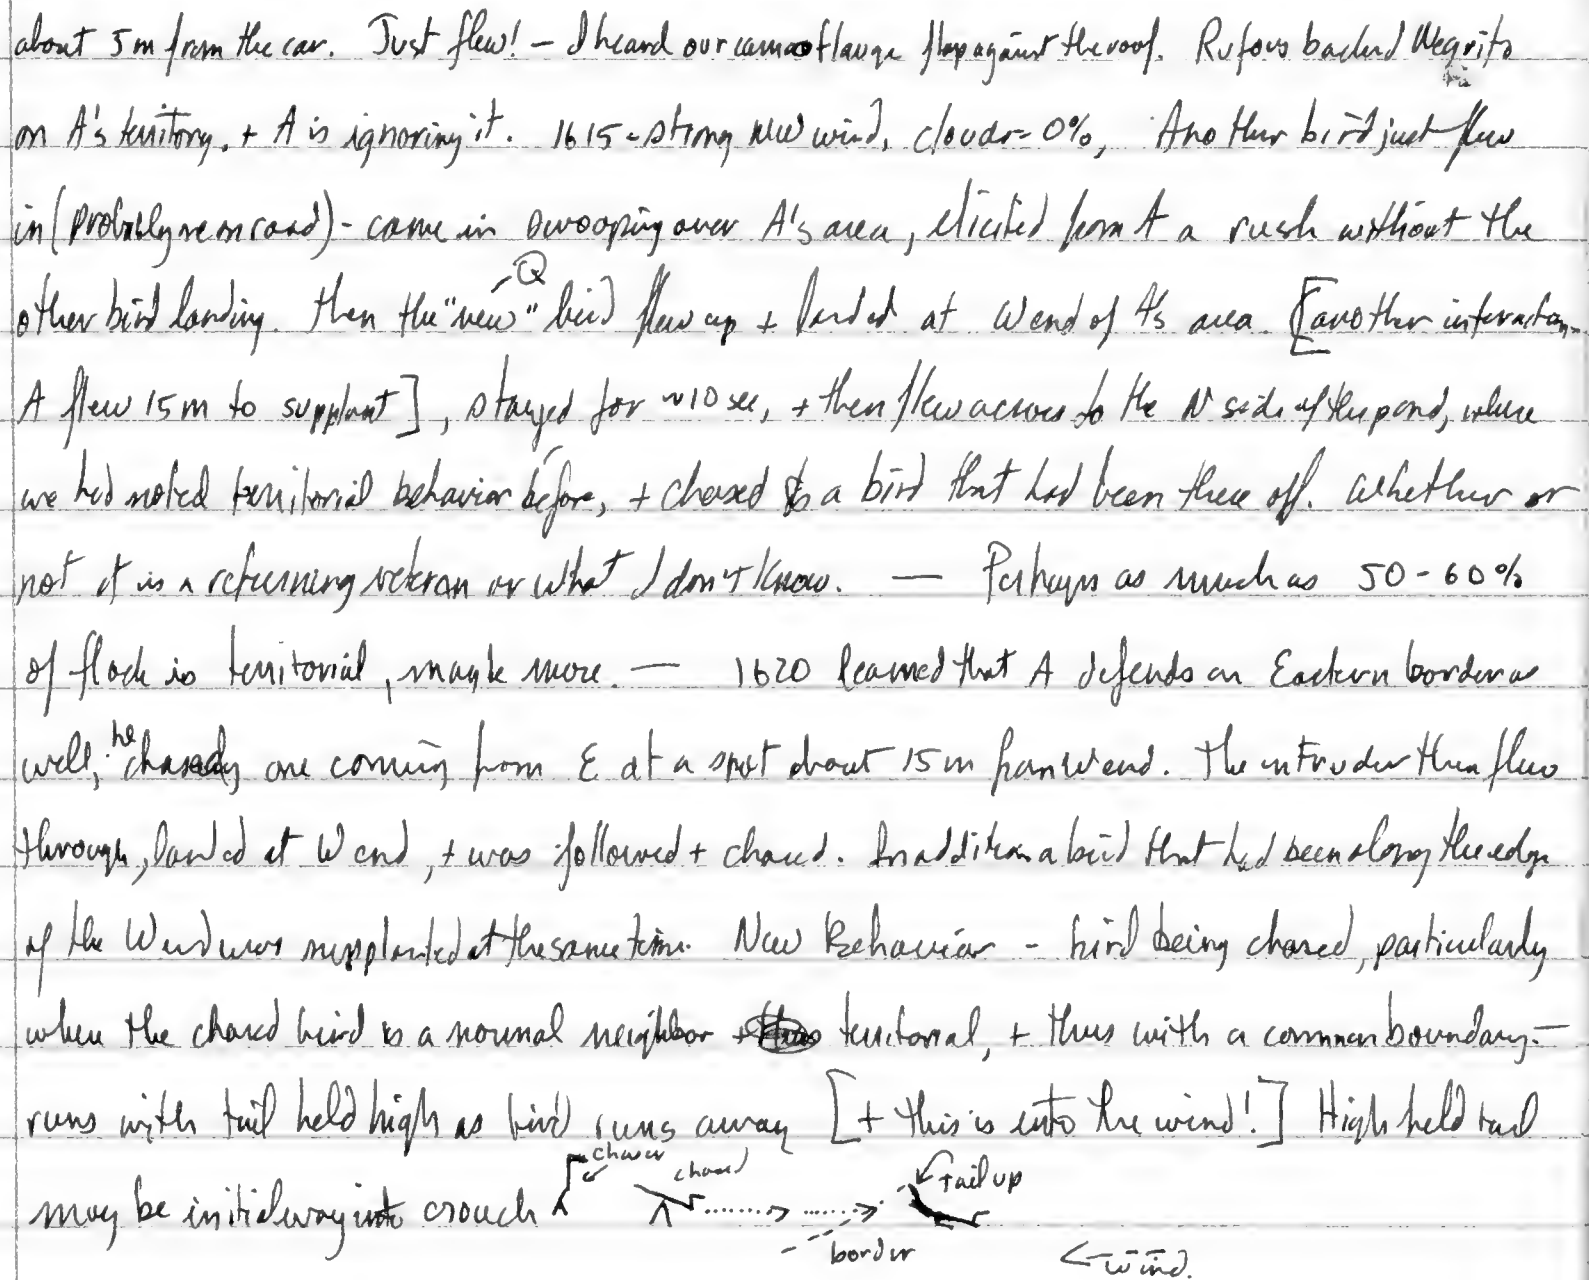 about 5m from the car. Just flew! – I heard our camaoflauge flap against the roof. Rufous backed Negrito
on A's territory, + A is ignoring it. 1615 - strong NW wind, clouds = 0%, Another bird just flew
in (probably seen on road) - came in swooping over A's area, elicited from A a rush without the
other bird landing. Then the "new" bird flew up + landed at W end of A's area [another interaction-
Q
A flew 15m to supplant], stayed for ~10 sec, + then flew across to the N side of the pond, where
we had noted territorial behavior before, + chased a bird that had been there off. Whether or
not it is a returning veteran or what I don't know. — Perhaps as much as 50-60%
of flock is territorial, maybe more. — 1620 learned that A defends an Eastern border as
well, he chased one coming from E at a spot about 15m from W end. The intruder then flew
through, landed at W end, + was followed + chased. In addition a bird that had been along the edge
of the W end was supplanted at the same time. New Behavior - bird being chased, particularly
when the chased bird is a normal neighbor + territorial, + thus with a common boundary -
runs with tail held high as bird runs away [+ this is into the wind!] High held tail
may be initial way into crouch
chaser chased tail up
border wind.